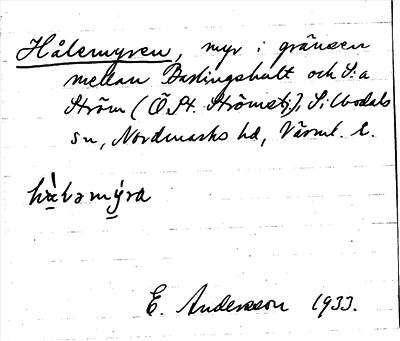 Hålemyren, myr i gränsen
mellan Baslingshult och S:a
Ström (Ö. St. Strömstj.), Silbodals
sn, Nordmarks hd, Värml. l.
E. Andersson 1933.